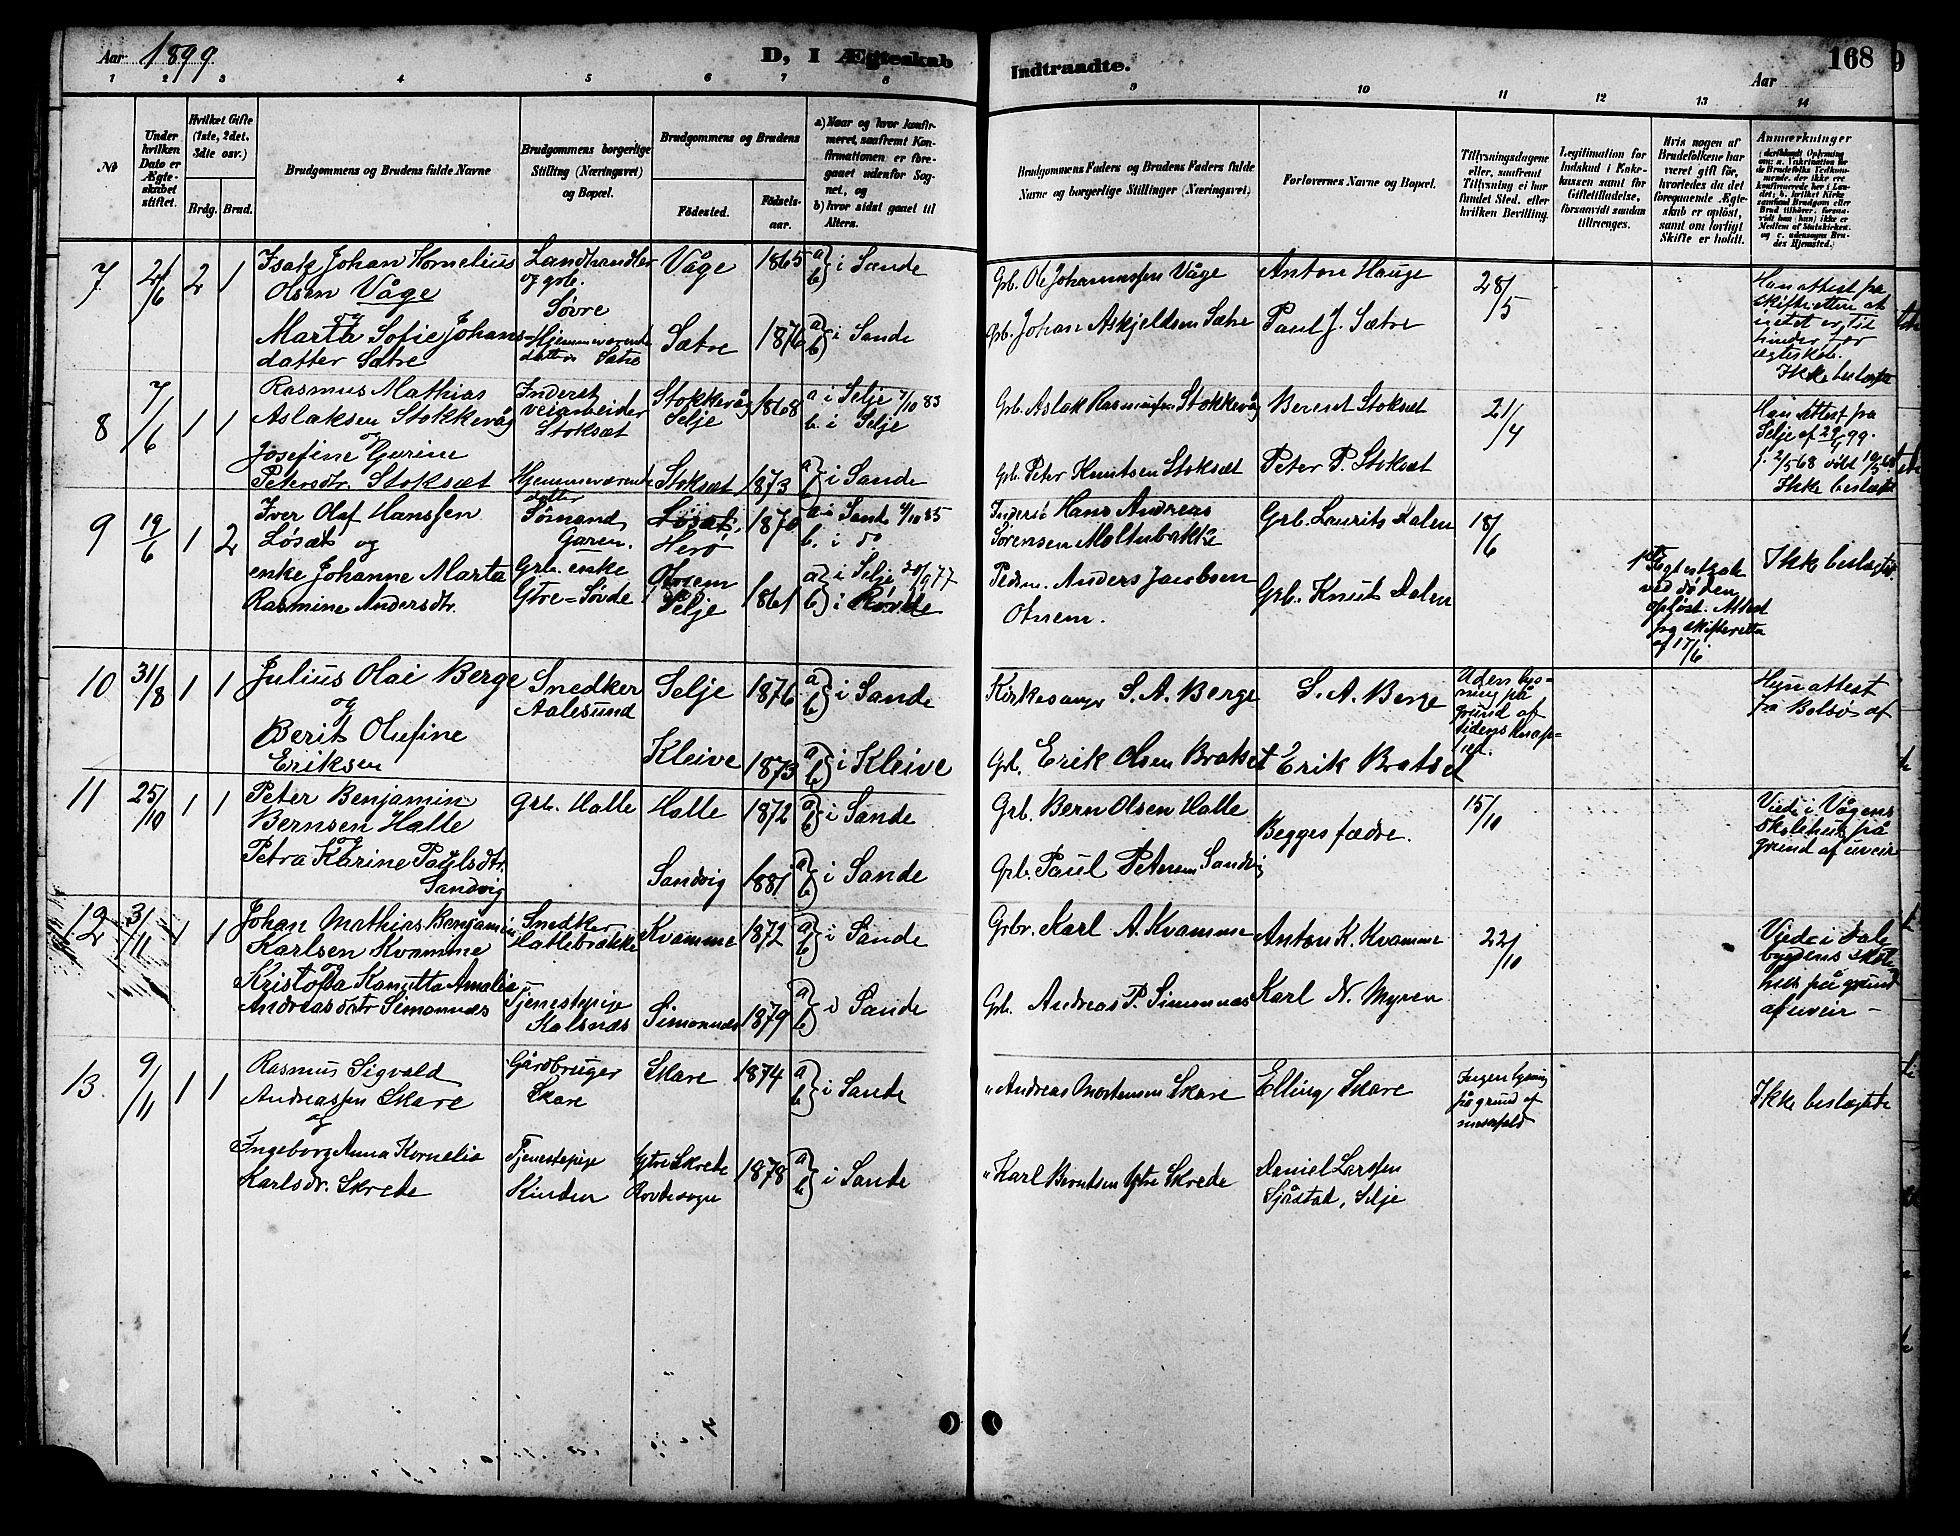 Aar 1899
D, I Ægteskab
Indtraadte.
168
Aar
1 2 3 4 5 6 7 8 9 10 11 12 13 14
No
Under hvilken Dato er Ægteskabet stiftet.
Hvilket Gifte (1ste, 2det, 3die osv.)
Brdg. Brud.
Brudgommens og Brudens fulde Navne
Brudgommens borgerlige Stilling (Næringsvei) og Bopæl.
Brudgommens og Brudens
Fødested.
Fødselsaar.
a) Naar og hvor konfirmeret, saafremt Konfirmationen er foregaaet udenfor Sognet, og
b) hvor sidst gaaet til Alters.
Brudgommens Faders og Brudens Faders fulde Navne og borgerlige Stillinger (Næringsvei)
Forlovernes Navne og Bopæl.
Tillysningsdagene eller, saafremt Tillysning ei har fundet Sted, efter hvilken Bevilling.
Legitimation for Indskud i Enkekassen samt for Giftetilladelse, forsaavidt saadan tiltrænges.
Hvis nogen af Brudefolkene har været gift før, hvorledes da det foregaaende Ægteskab er opløst, samt om lovligt Skifte er holdt.
Anmærkninger
7 2/6 2 1
Isak Johan Kornelius
Olsen Våge
og
Marta Sofie Johans-
datter Sætre
Landhandler
og grb.
Søvre
Hjemmeværende
datter Sætre
Våge 1865 a b) i Sande
Sætre 1876 a b) i Sande
Grb. Ole Johannessen Våge
Grb. Johan Askjeldsen Sætre
Anton Hauge
Paul J. Sætre
28/5
Han attest fra
skifteretten at
intet er til
hinder for
ægteskab.
Ikke beslægtet
8 7/6 1 1
Rasmus Mathias
Aslaksen Stokkevåg
og
Josefine Gurine
Petersdtr. Stoksæt
Inderst
veiarbeider
Stoksæt
Hjemmeværende
datter
Stokkevåg
Selje
1868 a i Selje 7/10 83
b. i Selje
Stoksæt 1873 a b) i Sande
Grb. Aslak Rasmussen Stokkevåg
Grb. Peter Knutsen Stoksæt
Berent Stoksæt
Peter P. Stoksæt
21/4
Han attest fra
Selje
Ikke beslægtet
9 19/6 1 2
Iver Olaf Hanssen
Løsæt og
enke Johanne Marta
Rasmine Andersdtr.
Sømand
Garen.
Grb. enke
Ytre-Søvde
Herø
1870 a i Sande 4/10 85
b. i do
Otnem
Selje
1861 a) i Selje
b) i Røvde
Inderst Hans Andreas
Sørensen Moltubakke
Anders Jacobsen
Otnem.
Grb. Laurits Dalen
Grb. Knut Dalen
18/6
1ste Ægteskab
ved døden
opløst. Attest
fra skifteretten
af 17/6
Ikke beslægtet.
10 31/8 1 1
Julius Olai Berge
og
Berit Olufine
Eriksen
Snedker
Aalesund
Selje 1876 a b) i Sande
Kleive 1873 a b) i Kleive
Kirkesanger S. A. Berge
Grb. Erik Olsen Bratset
S. A. Berge
Erik Bratset
Uden lys-
ning på
grund af
tidens knap-
hed.
Hun attest
fra Bolsø af
11 25/10 1 1
Peter Benjamin
Bernsen Halle
og
Petra Karine Paulsdtr.
Sandvig
Grb. Halle
Halle 1872 a b) i Sande
Sandvig 1881 a b) i Sande
Grb. Bern Olsen Halle
Grb. Paul Petersen Sandvig
Begges fædre.
15/10
Viede i Vågens
skolehus på
grund af uveir
12 3/11 1 1
Johan Mathias Benjamin
Karlsen Kvamme
og
Kristoffa Kanutta Amalie
Andreasdtr Simonnes
Snedker
Hallebrække
Tjenestepige
Kalsnæs
Kvamme 1872 a b) i Sande
Simonnæs 1879 a b) i Sande
Grbr. Karl A. Kvamme
Grb. Andreas P. Simonnæs
Anton K. Kvamme
Karl N. Myren
22/10
Viede i Dals-
bygdens skole-
hus på grund
af uveir -
13 9/11 1 1
Rasmus Sigvald
Andreassen Skare
og
Ingeborg Anna Kornelia
Karlsdr. Skrede
Gårdbruger
Skare
Tjenestepige
Kinden
Skare 1874 a b) i Sande
Ytre Skrede
Rovdesogn
1878 a b) i Sande
" Andreas Mortensen Skare
" Karl Berntsen Ytre Skrede
Elling Skare
Daniel Larssen
Sjåstad, Selje
Ingen lysning
på grund af
messefald
Ikke beslægtede